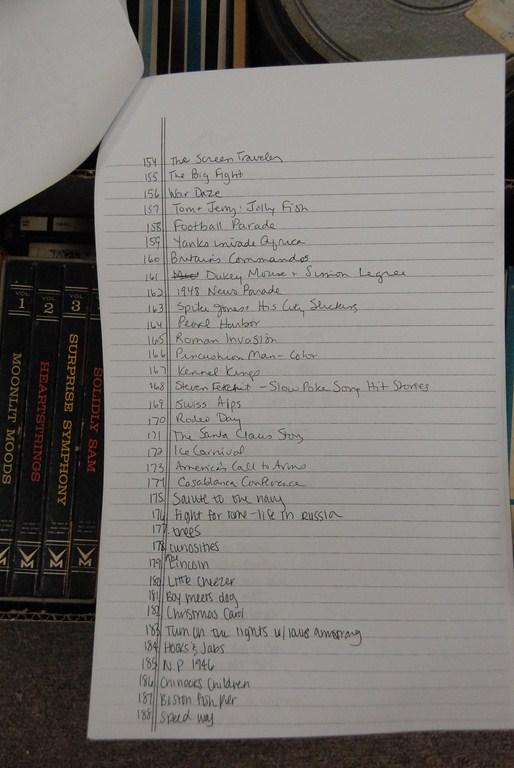 154 The Screen Traveler
155 The Big Fight
156 War Daze
157 Tom + Jerry: Jolly Fish
158 Football Parade
159 Yanks invade Africa
160 Britain's Commandos
161 Dukey Mouse + Simon Legree
162 1948 News Parade
163 Spike Jones + His City Slickers
164 Pearl Harbor
165 Roman Invasion
166 Pincushion Man - Color
167 Kennel Kings
168 Steven Fetchit - Slow Poke Song Hit Stories
169 Swiss Alps
170 Rodeo Day
171 The Santa Claus Story
172 Ice Carnival
173 America's Call to Arms
174 Casablanca Conference
175 Salute to the navy
176 Fight for Rome - life in Russia
177
178 curiosities
179 Abe Lincoln
180 Little Cheezer
181 Boy meets dog
182 Christmas Carol
183 Turn on the lights w/ louis armstrong
184 Hooks & Jabs
185 N.P 1946
186 Chinooks Children
187 Boston Fish Pier
188 Speed way
VOL. 1 MOONLIT MOODS
VOL. 2 HEARTSTRINGS
VOL. 3 SURPRISE SYMPHONY
SOLIDLY SAM